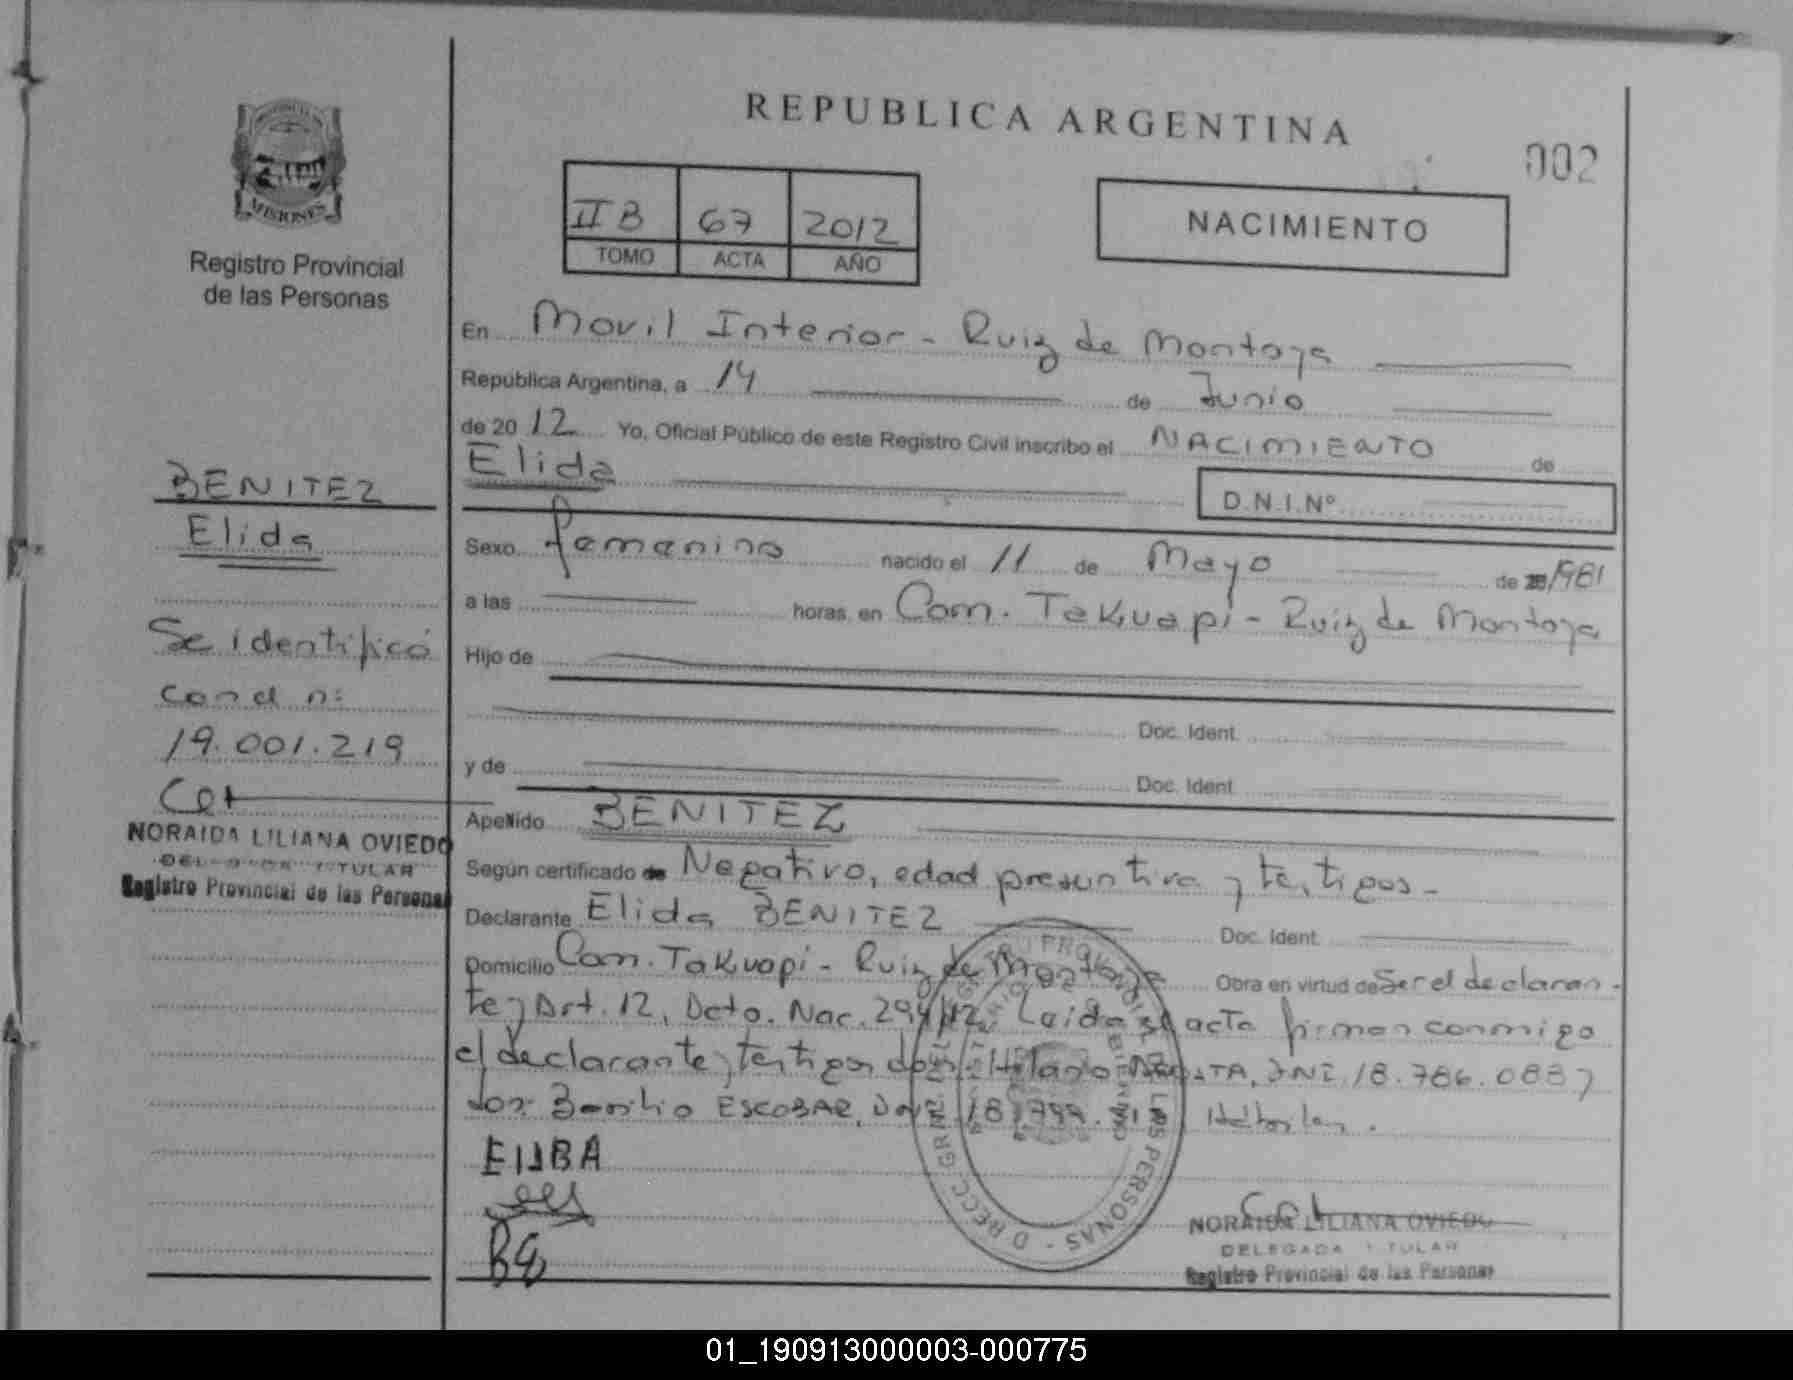 MISIONES
Registro Provincial
de las Personas
BENITEZ
Elida
Se identificó
con d n:
19.001.219
NORAIDA LILIANA OVIEDO
DELEGADA TITULAR
Registro Provincial de las Personas
REPUBLICA ARGENTINA
002
II B 67 2012
TOMO ACTA AÑO
NACIMIENTO
En Movil Interior - Ruiz de Montoya
República Argentina, a 14 de Junio
de 2012 Yo, Oficial Público de este Registro Civil inscribo el NACIMIENTO de
Elida
D.N.I.Nº
Sexo femenino nacido el 11 de Mayo de 1981
a las horas, en Com. Takuapi - Ruiz de Montoya
Hijo de
Doc. Ident.
y de Doc. Ident.
Apellido BENITEZ
Según certificado de Negativo, edad presuntiva y testigos -
Declarante Elida BENITEZ Doc. Ident.
Domicilio Com. Takuapi - Ruiz de Montoya Obra en virtud de Ser el declaran-
te y Art. 12, Dcto. Nac. 294/12. Leida el acta firman conmigo
el declarante, testigos don: Hilario ACOSTA, DNI. 18.786.088 y
don Basilio ESCOBAR, DNI 18.799.
ELIBA
NORAIDA LILIANA OVIEDO
DELEGADA TITULAR
Registro Provincial de las Personas
01_190913000003-000775